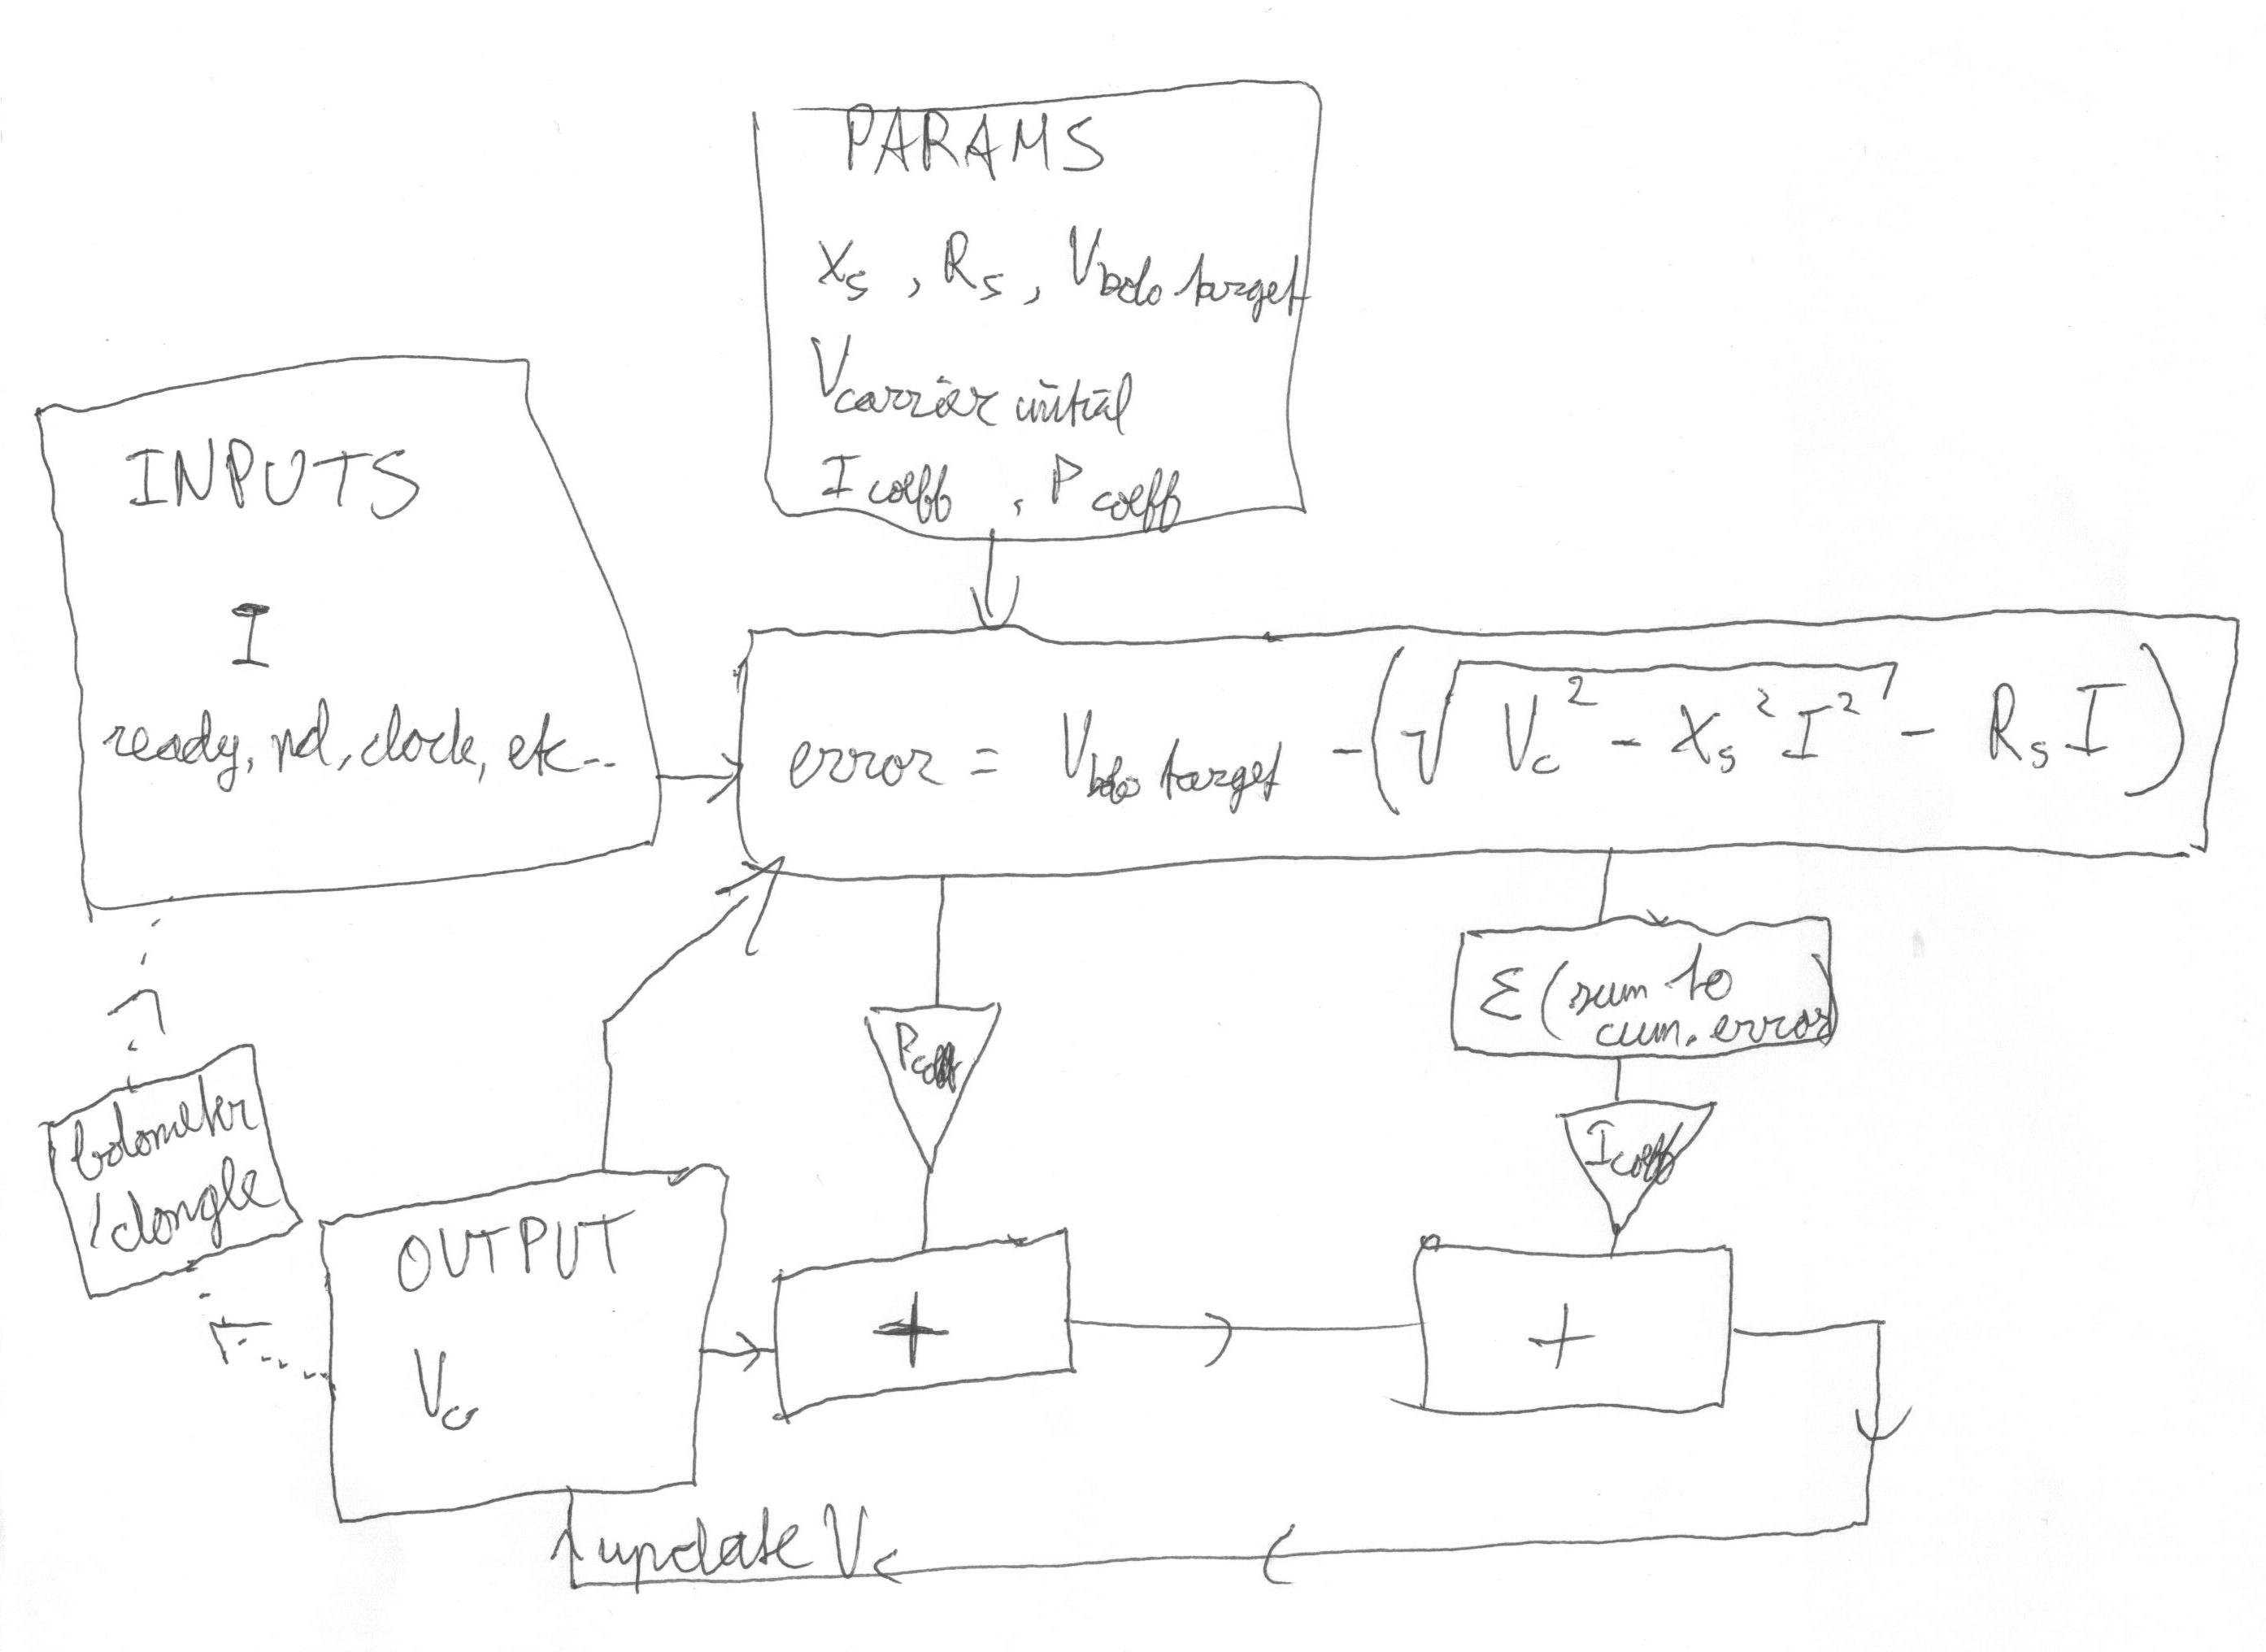 PARAMS
Xs , Rs , Vbolo target
Vcarrier initial
I coeff , P coeff
INPUTS
I
ready, nd, clock, etc..
error = Vbolo target - (√ Vc² - Xs² I² - Rs I)
Σ (sum to
cum. error)
Pcoeff
Icoeff
bolometer
/dongle
OUTPUT
Vc
+
+
update Vc